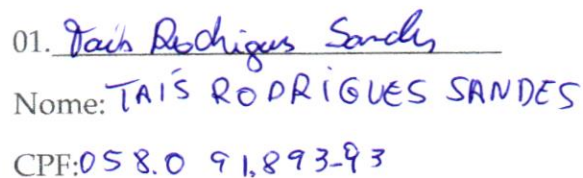 01. Taís Rodrigues Sandes
Nome: TAÍS RODRIGUES SANDES
CPF:058.091.893-93